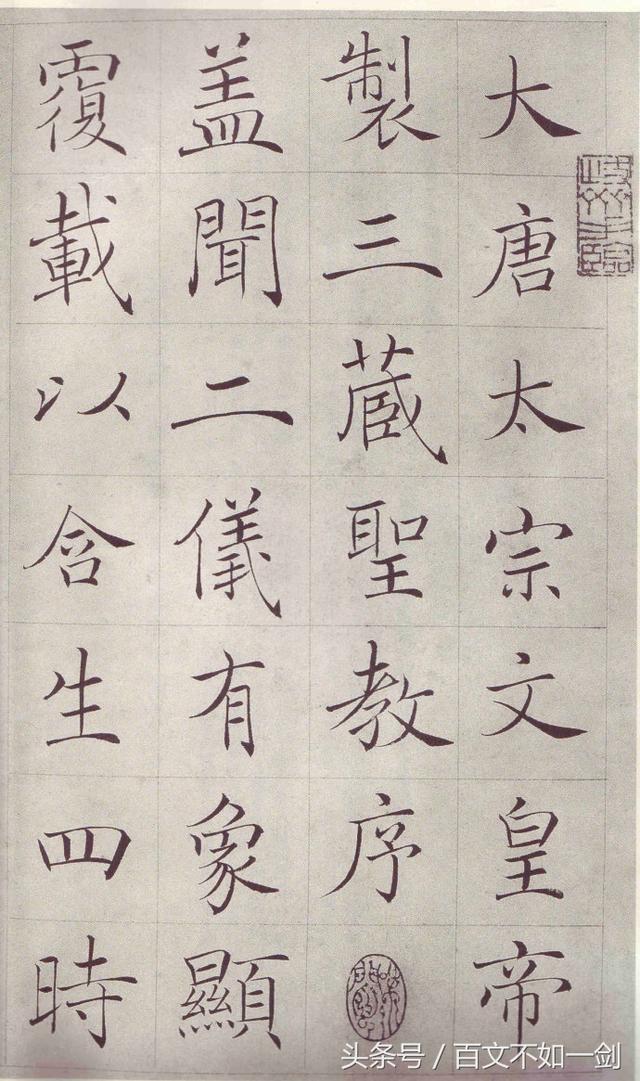 大唐太宗文皇帝
製三藏聖教序
盖聞二儀有象顯
覆載以含生四時
头条号 / 百文不如一剑